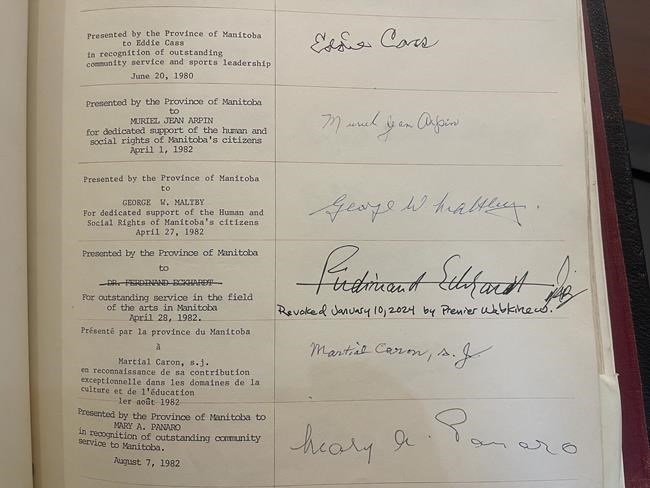 Presented by the Province of Manitoba
to Eddie Cass
in recognition of outstanding
community service and sports leadership
June 20, 1980
Eddie Cass
Presented by the Province of Manitoba
to
MURIEL JEAN ARPIN
for dedicated support of the human and
social rights of Manitoba's citizens
April 1, 1982
Muriel Jean Arpin
Presented by the Province of Manitoba
to
GEORGE W. MALTBY
For dedicated support of the Human and
Social Rights of Manitoba's citizens
April 27, 1982
George W Maltby.
Presented by the Province of Manitoba
to
DR. FERDINAND ECKHARDT
For outstanding service in the field
of the arts in Manitoba
April 28, 1982.
Ferdinand Eckhardt
Revoked January 10, 2024 by Premier Wab Kinew.
Présenté par la province du Manitoba
à
Martial Caron, s.j.
en reconnaissance de sa contribution
exceptionnelle dans les domaines de la
culture et de l'éducation
1er août 1982
Martial Caron, s.j.
Presented by the Province of Manitoba to
MARY A. PANARO
in recognition of outstanding community
service to Manitoba.
August 7, 1982
Mary A. Panaro